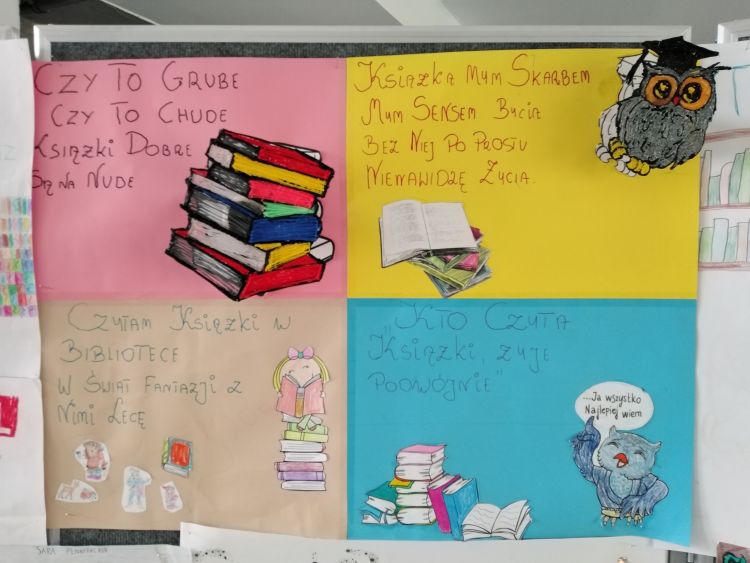 CZY TO GRUBE
CZY TO CHUDE
KSIĄZKI DOBRE
SĄ NA NUDE
KSIĄZKA MYM SKARBEM
MYM SENSEM BYCIA
BEZ NIEJ PO PROSTU
NIENAWIDZĘ ŻYCIA.
CZYTAM KSIĄZKI W
BIBLIOTECE
W ŚWIAT FANTAZJI Z
NIMI LECĘ
„KTO CZYTA
KSIĄZKI, ŻYJE
PODWÓJNIE"
...Ja wszystko
Najlepiej wiem
SARA